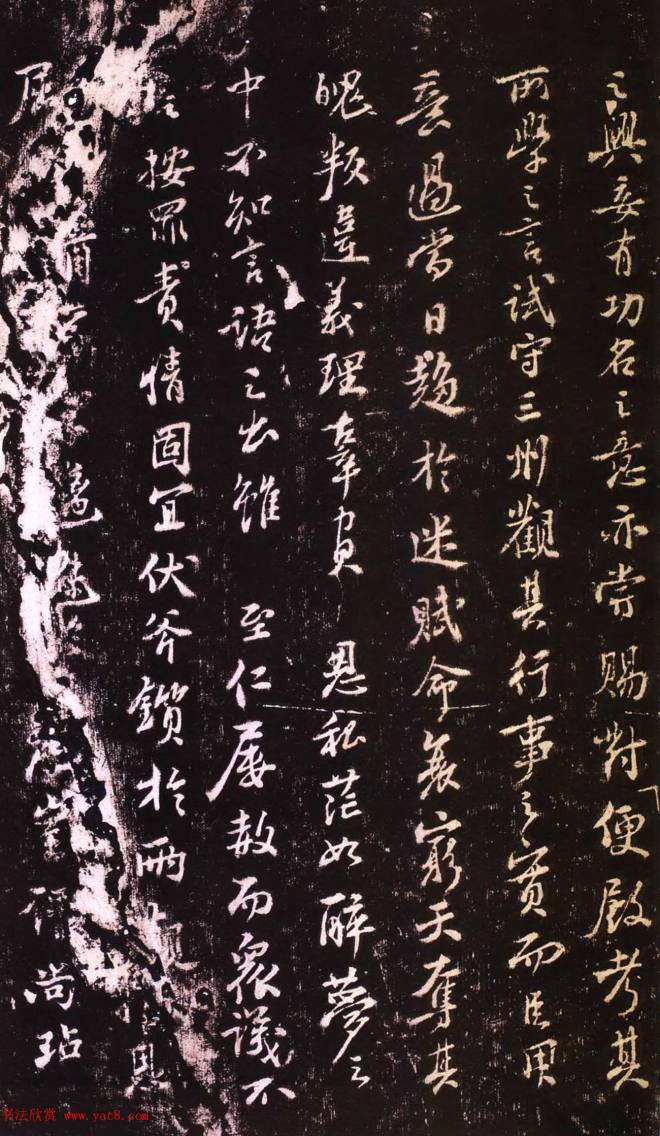 之興妄有功名之意亦嘗賜對便殿考其
所學之言試守三州觀其行事之實而臣用
意過當日趨於迷賦命衰窮天奪其
魄叛違義理辜負 恩私茫如醉夢之
中不知言語之出雖 至仁屢赦而眾議不
按罪責情固宜伏斧鑕於兩觀 恩
屈 豈謂尚玷
书法欣赏 www.yac8.com